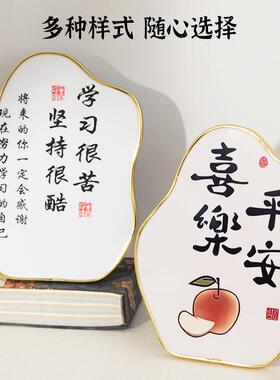 多种样式 随心选择
学习很苦
坚持很酷
将来的你一定会感谢
现在努力学习的自己
平安
喜樂